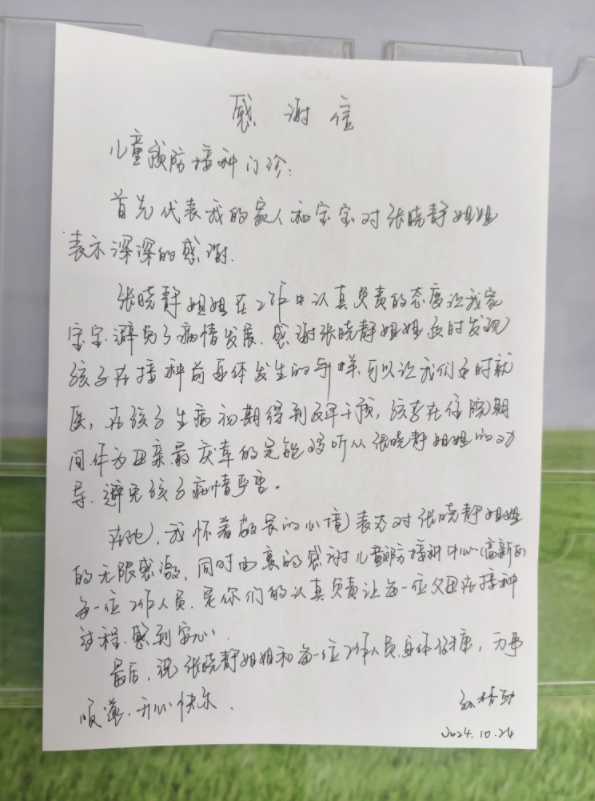 感谢信
儿童预防接种门诊:
首先代表我的家人和宝宝对张晓静姐姐
表示深深的感谢.
张晓静姐姐在工作中认真负责的态度让我家
宝宝避免了病情发展.感谢张晓静姐姐及时发现
孩子在接种前身体发生的异样可以让我们及时就
医,在孩子生病初期得到及早干预,孩子在住院期
间作为母亲最庆幸的是能够听从张晓静姐姐的劝
导.避免孩子病情严重。
在此,我怀着敬畏的心境表达对张晓静姐姐
的无限感激,同时由衷的感谢儿童预防接种中心(高新区)
每一位工作人员.是你们的认真负责让每一位父母在接种
过程.感到安心.
最后,祝张晓静姐姐和每一位工作人员.身体健康,万事
顺遂.开心快乐.
2024.10.24